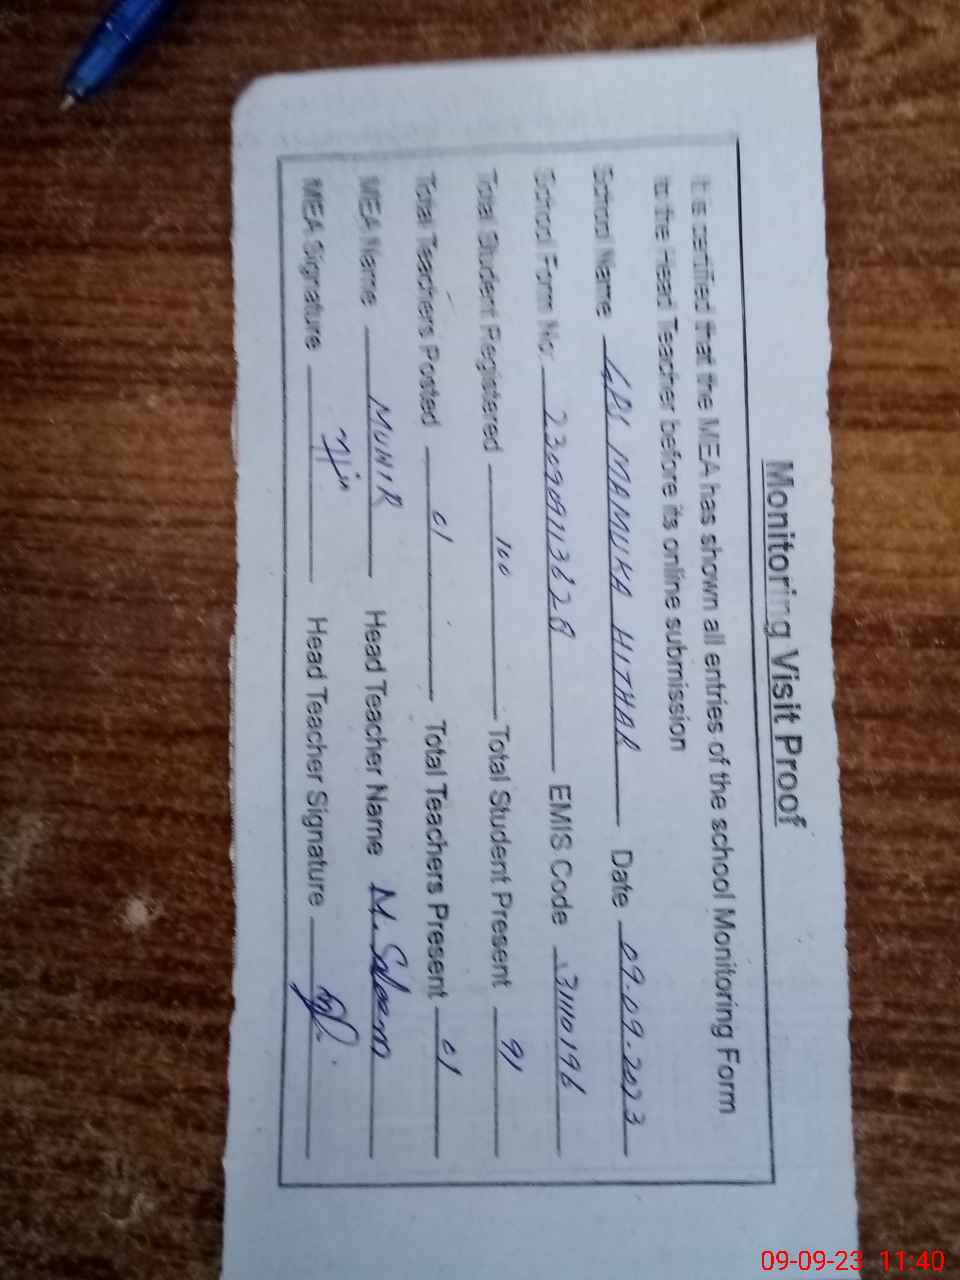 Monitoring Visit Proof
It is certified that the MEA has shown all entries of the school Monitoring Form
to the Head Teacher before its online submission
School Name GPS MAMUKA HITHAR Date 09.09.2023
School Form No: EMIS Code 31110196
Total Student Registered 100 Total Student Present 91
Total Teachers Posted 01 Total Teachers Present 01
MEA Name MUNIR Head Teacher Name M. Saleem
MEA Signature Head Teacher Signature
09-09-23 11:40